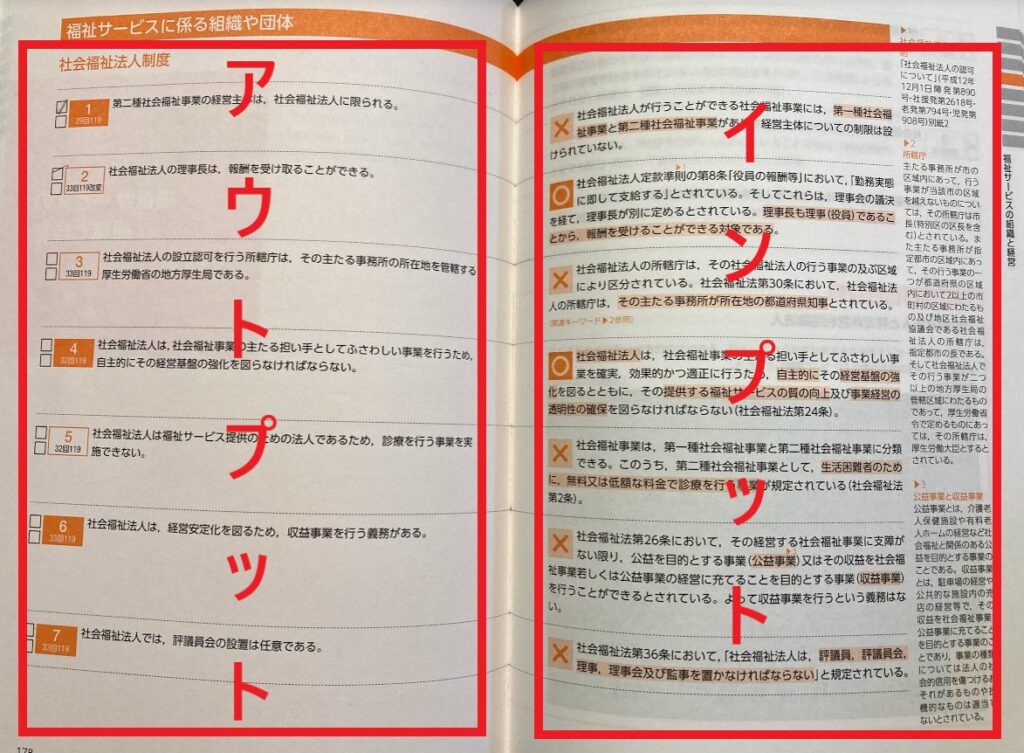 福祉サービスに係る組織や団体
社会福祉法人制度
アウトプット
1
29回119
第二種社会福祉事業の経営主体は、社会福祉法人に限られる。
2
33回119改変
社会福祉法人の理事長は、報酬を受け取ることができる。
3
33回119
社会福祉法人の設立認可を行う所轄庁は、その主たる事務所の所在地を管轄する
厚生労働省の地方厚生局である。
4
32回119
社会福祉法人は、社会福祉事業の主たる担い手としてふさわしい事業を行うため、
自主的にその経営基盤の強化を図らなければならない。
5
32回119
社会福祉法人は福祉サービス提供のための法人であるため、診療を行う事業を実
施できない。
6
33回119
社会福祉法人は、経営安定化を図るため、収益事業を行う義務がある。
7
33回119
社会福祉法人では、評議員会の設置は任意である。
178
インプット
× 社会福祉法人が行うことができる社会福祉事業には、第一種社会福
祉事業と第二種社会福祉事業があり、経営主体についての制限は設
けられていない。
○ 社会福祉法人定款準則の第8条「役員の報酬等」において、「勤務実態
に即して支給する」とされている。そしてこれらは、理事会の議決
を経て、理事長が別に定めるとされている。理事長も理事(役員)であるこ
とから、報酬を受けることができる対象である。
× 社会福祉法人の所轄庁は、その社会福祉法人の行う事業の及ぶ区域
により区分されている。社会福祉法第30条において、社会福祉法
人の所轄庁は、その主たる事務所が所在地の都道府県知事とされている。
(関連キーワード▶2参照)
○ 社会福祉法人は、社会福祉事業の主たる担い手としてふさわしい事
業を確実、効果的かつ適正に行うため、自主的にその経営基盤の強
化を図るとともに、その提供する福祉サービスの質の向上及び事業経営の
透明性の確保を図らなければならない(社会福祉法第24条)。
× 社会福祉事業は、第一種社会福祉事業と第二種社会福祉事業に分類
できる。このうち、第二種社会福祉事業として、生活困難者のため
に、無料又は低額な料金で診療を行う事業が規定されている(社会福祉法
第2条)。
× 社会福祉法第26条において、その経営する社会福祉事業に支障が
ない限り、公益を目的とする事業(公益事業)又はその収益を社会福
祉事業若しくは公益事業の経営に充てることを目的とする事業(収益事業)
を行うことができるとされている。よって収益事業を行うという義務はな
い。
× 社会福祉法第36条において、「社会福祉法人は、評議員、評議員会、
理事、理事会及び監事を置かなければならない」と規定されている。
▶1
則
「社会福祉法人の認可
について」(平成12年
12月1日障発第890
号・社援発第2618号・
老発第794号・児発第
908号)別紙2
▶2
所轄庁
主たる事務所が市の
区域内にあって、行う
事業が当該市の区域
を越えないものについ
ては、その所轄庁は市
長(特別区の区長を含
む)とされている。ま
た主たる事務所が指
定都市の区域内にあっ
て、その行う事業の一
つが都道府県の区域
内において2以上の市
町村の区域にわたるも
の及び地区社会福祉
協議会である社会福
祉法人の所轄庁は、
指定都市の長である。
そして社会福祉法人で
その行う事業が二つ
以上の地方厚生局の
管轄区域にわたるもの
であって、厚生労働省
令で定めるものにあっ
ては、その所轄庁は、
厚生労働大臣とすると
されている。
▶3
公益事業と収益事業
公益事業とは、介護老
人保健施設や有料老
人ホームの経営など社
会福祉と関係のある公
益を目的とする事業の
ことである。収益事業
とは、駐車場の経営や
公共的な施設内の売
店の経営等で、その
収益を社会福祉事業
公益事業に充てること
を目的とする事業のこ
とであり、事業の種類
については法人の社
会的信用を傷つけるお
それがあるものや投
機的なものは適当で
ないとされている。
福祉サービスの組織と経営